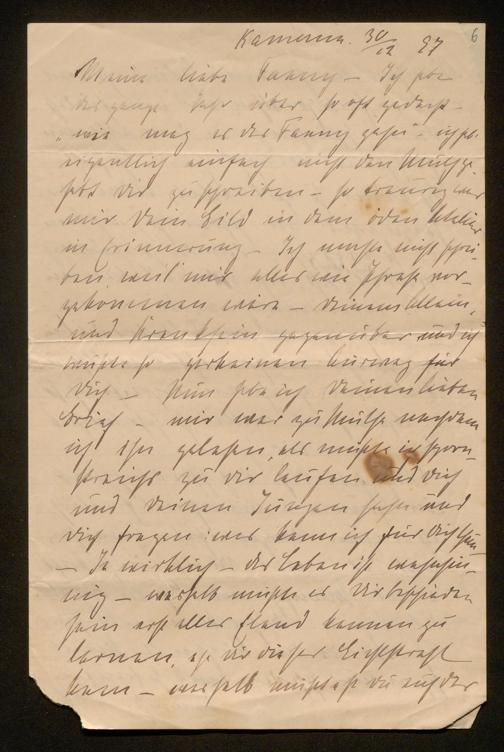 Kamerun. 30/12 97
6
Meine liebe Fanny – Ich habe
das ganze Jahr über so oft gedacht –
„wie mag es der Fanny gehen – ich habe
eigentlich einfach nicht den Muth ge-
habt dir zu schreiben – so traurig war
mir dein Bild in dem öden Atelier
in Erinnerung – Ich mochte nicht schrei-
ben, weil mir alles wie Phrase vor-
gekommen wäre – deinem Allein,
und Kranksein gegenüber und ich
wußte so gar keinen Ausweg für
dich – Nun habe ich deinen lieben
Brief – mir war zu Muthe nachdem
ich ihn gelesen, als müßte ich sporn-
streichs zu dir laufen und dich
und deinen Jungen sehen und
dich fragen: was kann ich für dich thun
– Ja wirklich – das Leben ist wahnsin-
nig – weshalb mußte es dir beschieden
sein erst alles Elend kennen zu
lernen, ehe dir dieser Lichtstrahl
kam – weshalb mußtest du auf der